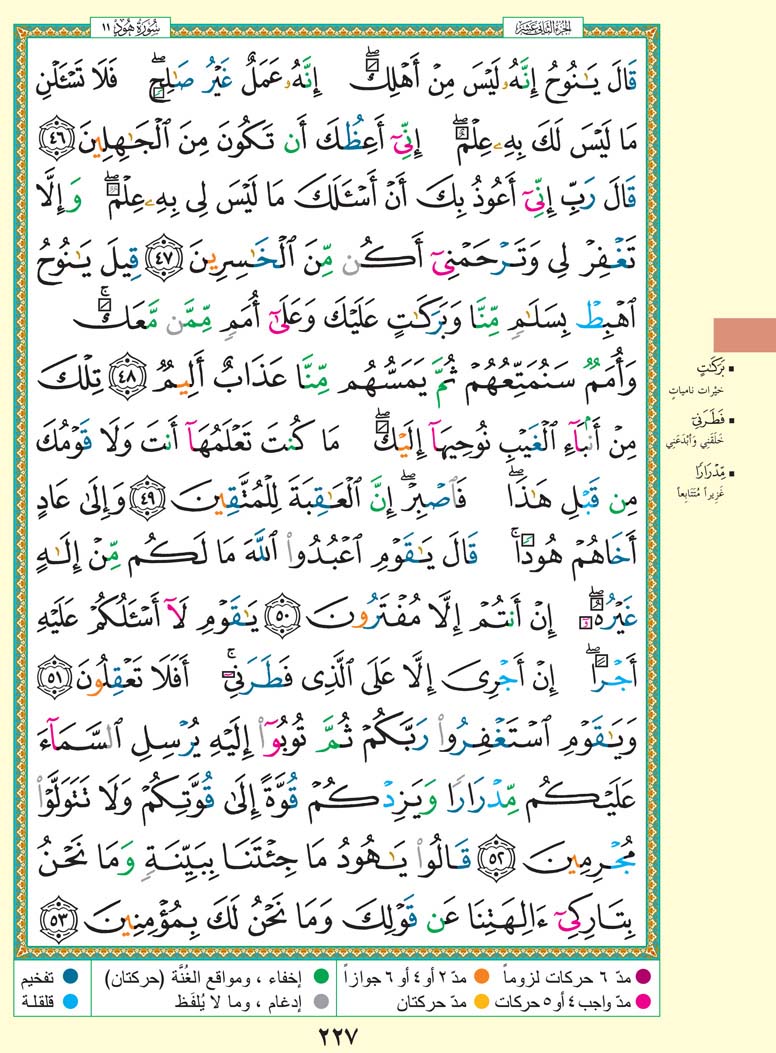 الجزء الثاني عشر
سُورَةُ هُودٍ ١١
قَالَ يَـٰنُوحُ إِنَّهُۥ لَيْسَ مِنْ أَهْلِكَ ۖ إِنَّهُۥ عَمَلٌ غَيْرُ صَـٰلِحٍ ۖ فَلَا تَسْـَٔلْنِ
مَا لَيْسَ لَكَ بِهِۦ عِلْمٌ ۖ إِنِّىٓ أَعِظُكَ أَن تَكُونَ مِنَ ٱلْجَـٰهِلِينَ ٤٦
قَالَ رَبِّ إِنِّىٓ أَعُوذُ بِكَ أَنْ أَسْـَٔلَكَ مَا لَيْسَ لِى بِهِۦ عِلْمٌ ۖ وَإِلَّا
تَغْفِرْ لِى وَتَرْحَمْنِىٓ أَكُن مِّنَ ٱلْخَـٰسِرِينَ ٤٧ قِيلَ يَـٰنُوحُ
ٱهْبِطْ بِسَلَـٰمٍ مِّنَّا وَبَرَكَـٰتٍ عَلَيْكَ وَعَلَىٰٓ أُمَمٍ مِّمَّن مَّعَكَ ۚ
وَأُمَمٌ سَنُمَتِّعُهُمْ ثُمَّ يَمَسُّهُم مِّنَّا عَذَابٌ أَلِيمٌ ٤٨ تِلْكَ
مِنْ أَنۢبَآءِ ٱلْغَيْبِ نُوحِيهَآ إِلَيْكَ ۖ مَا كُنتَ تَعْلَمُهَآ أَنتَ وَلَا قَوْمُكَ
مِن قَبْلِ هَـٰذَا ۖ فَٱصْبِرْ ۖ إِنَّ ٱلْعَـٰقِبَةَ لِلْمُتَّقِينَ ٤٩ وَإِلَىٰ عَادٍ
أَخَاهُمْ هُودًا ۚ قَالَ يَـٰقَوْمِ ٱعْبُدُوا۟ ٱللَّهَ مَا لَكُم مِّنْ إِلَـٰهٍ
غَيْرُهُۥٓ ۖ إِنْ أَنتُمْ إِلَّا مُفْتَرُونَ ٥٠ يَـٰقَوْمِ لَآ أَسْـَٔلُكُمْ عَلَيْهِ
أَجْرًا ۖ إِنْ أَجْرِىَ إِلَّا عَلَى ٱلَّذِى فَطَرَنِىٓ ۚ أَفَلَا تَعْقِلُونَ ٥١
وَيَـٰقَوْمِ ٱسْتَغْفِرُوا۟ رَبَّكُمْ ثُمَّ تُوبُوٓا۟ إِلَيْهِ يُرْسِلِ ٱلسَّمَآءَ
عَلَيْكُم مِّدْرَارًا وَيَزِدْكُمْ قُوَّةً إِلَىٰ قُوَّتِكُمْ وَلَا تَتَوَلَّوْا۟
مُجْرِمِينَ ٥٢ قَالُوا۟ يَـٰهُودُ مَا جِئْتَنَا بِبَيِّنَةٍ وَمَا نَحْنُ
بِتَارِكِىٓ ءَالِهَتِنَا عَن قَوْلِكَ وَمَا نَحْنُ لَكَ بِمُؤْمِنِينَ ٥٣
بَرَكَـٰتٍ
خيْرات نامياتٍ
فَطَرَنِىٓ
خَلَقَنِي وَأَبْدَعَنِي
مِّدْرَارًا
غَزِيراً مُتَتَابِعاً
مدّ ٦ حركات لزوماً
مدّ ٢ أو ٤ أو ٦ جوازاً
إخفاء ، ومواقع الغُنَّة (حركتان)
تفخيم
مدّ واجب ٤ أو ٥ حركات
مدّ حركتان
إدغام ، وما لا يُلفَظ
قلقلة
٢٢٧